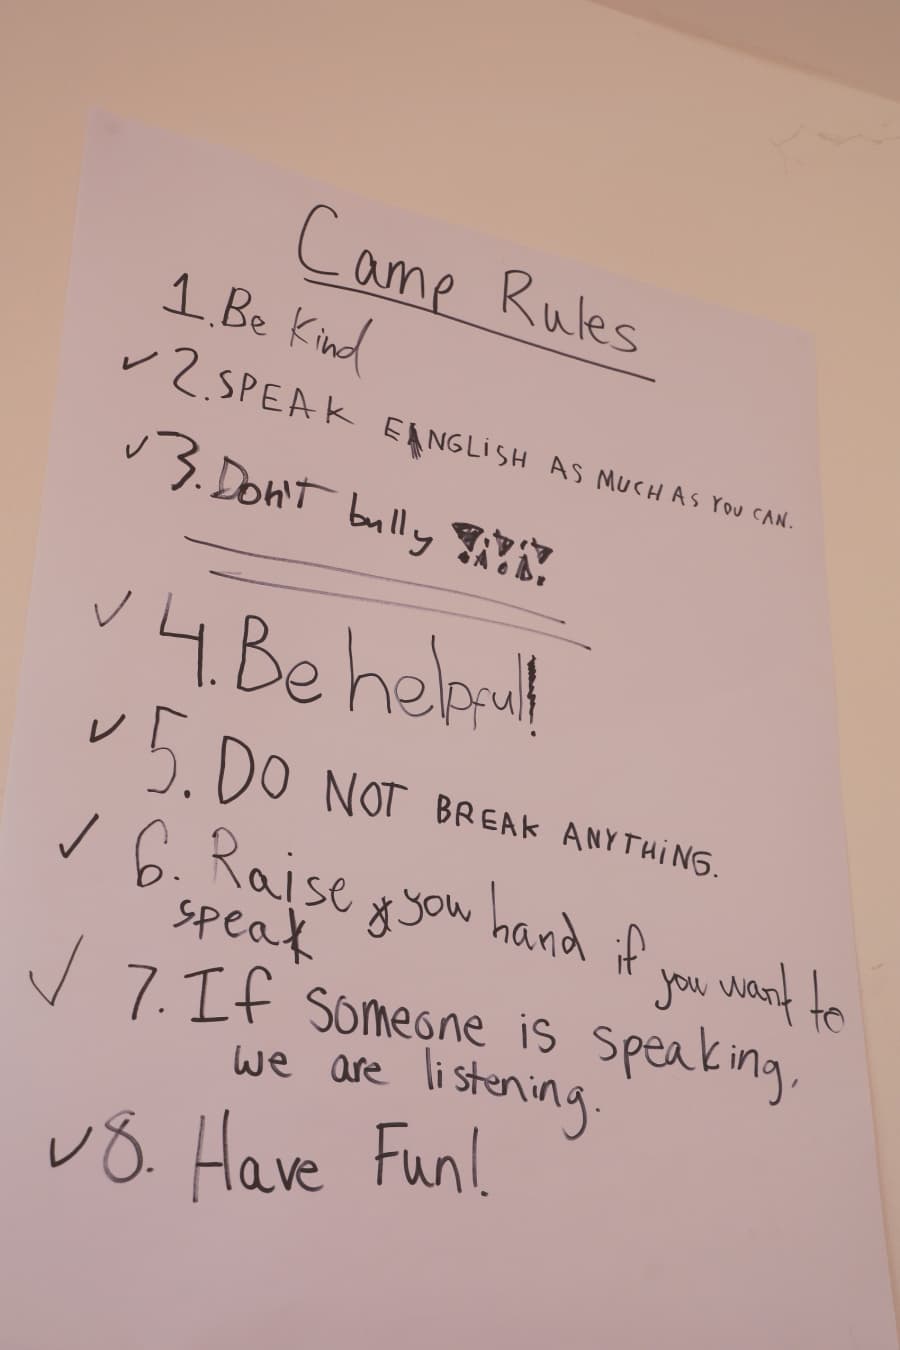 Camp Rules
1. Be Kind
✓ 2. SPEAK ENGLiSH AS MUCH AS YOU CAN.
✓ 3. Don't bully !!!
✓ 4. Be helpful!
✓ 5. DO NOT BREAK ANYTHiNG.
✓ 6. Raise you hand if you want to
speak
✓ 7. If someone is speaking,
we are listening.
✓ 8. Have Fun!